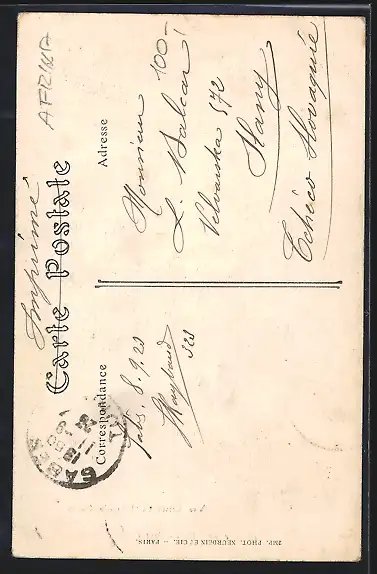 AFRIKA
Imprimé
Carte Postale
Correspondance
Adresse
8.9.23
Monsieur
100-
L. Balcar
Velvarska 572
Slany
Tchéco Slovaquie
GABES
IMP. PHOT. NEURDEIN ET CIE. – PARIS.